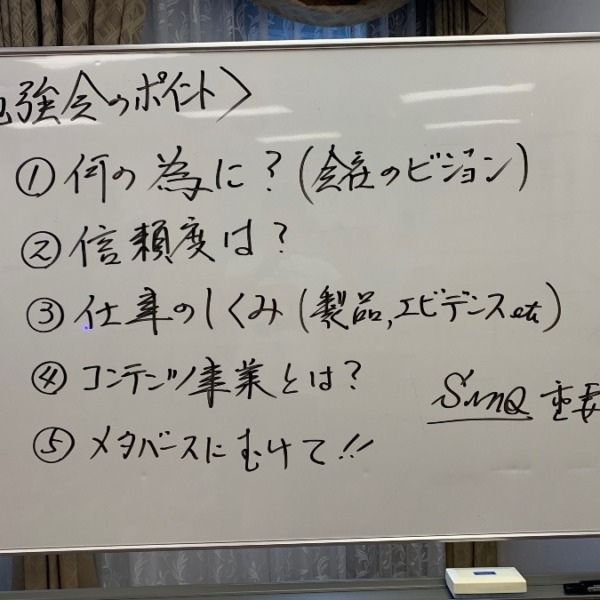 勉強会のポイント〉
① 何の為に?(会社のビジョン)
② 信頼度は?
③ 仕事のしくみ(製品,エビデンスetc)
④ コンテンツ事業とは?
重要
⑤ メタバースにむけて!!